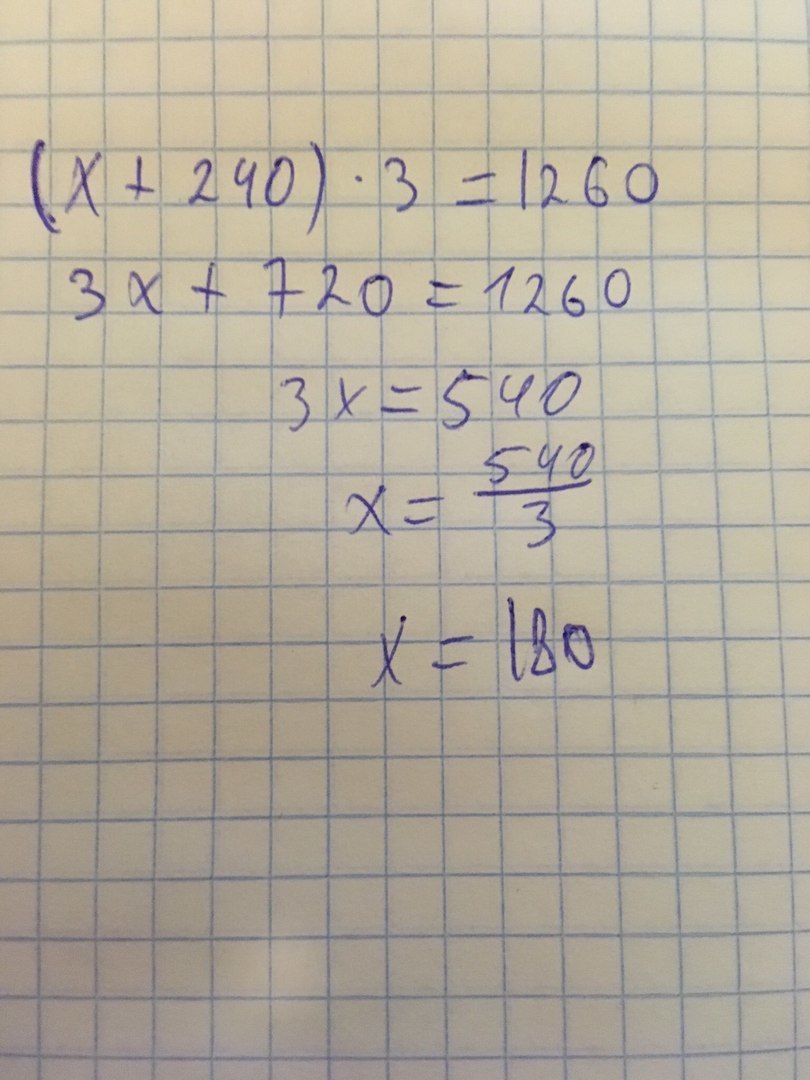 (x + 240) · 3 = 1260
3x + 720 = 1260
3x = 540
x = 540/3
x = 180